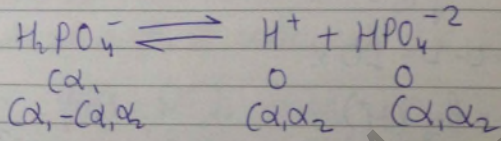 H₂PO₄⁻ ⇌ H⁺ + HPO₄⁻²
Cα₁ 0 0
Cα₁-Cα₁α₂ Cα₁α₂ Cα₁α₂